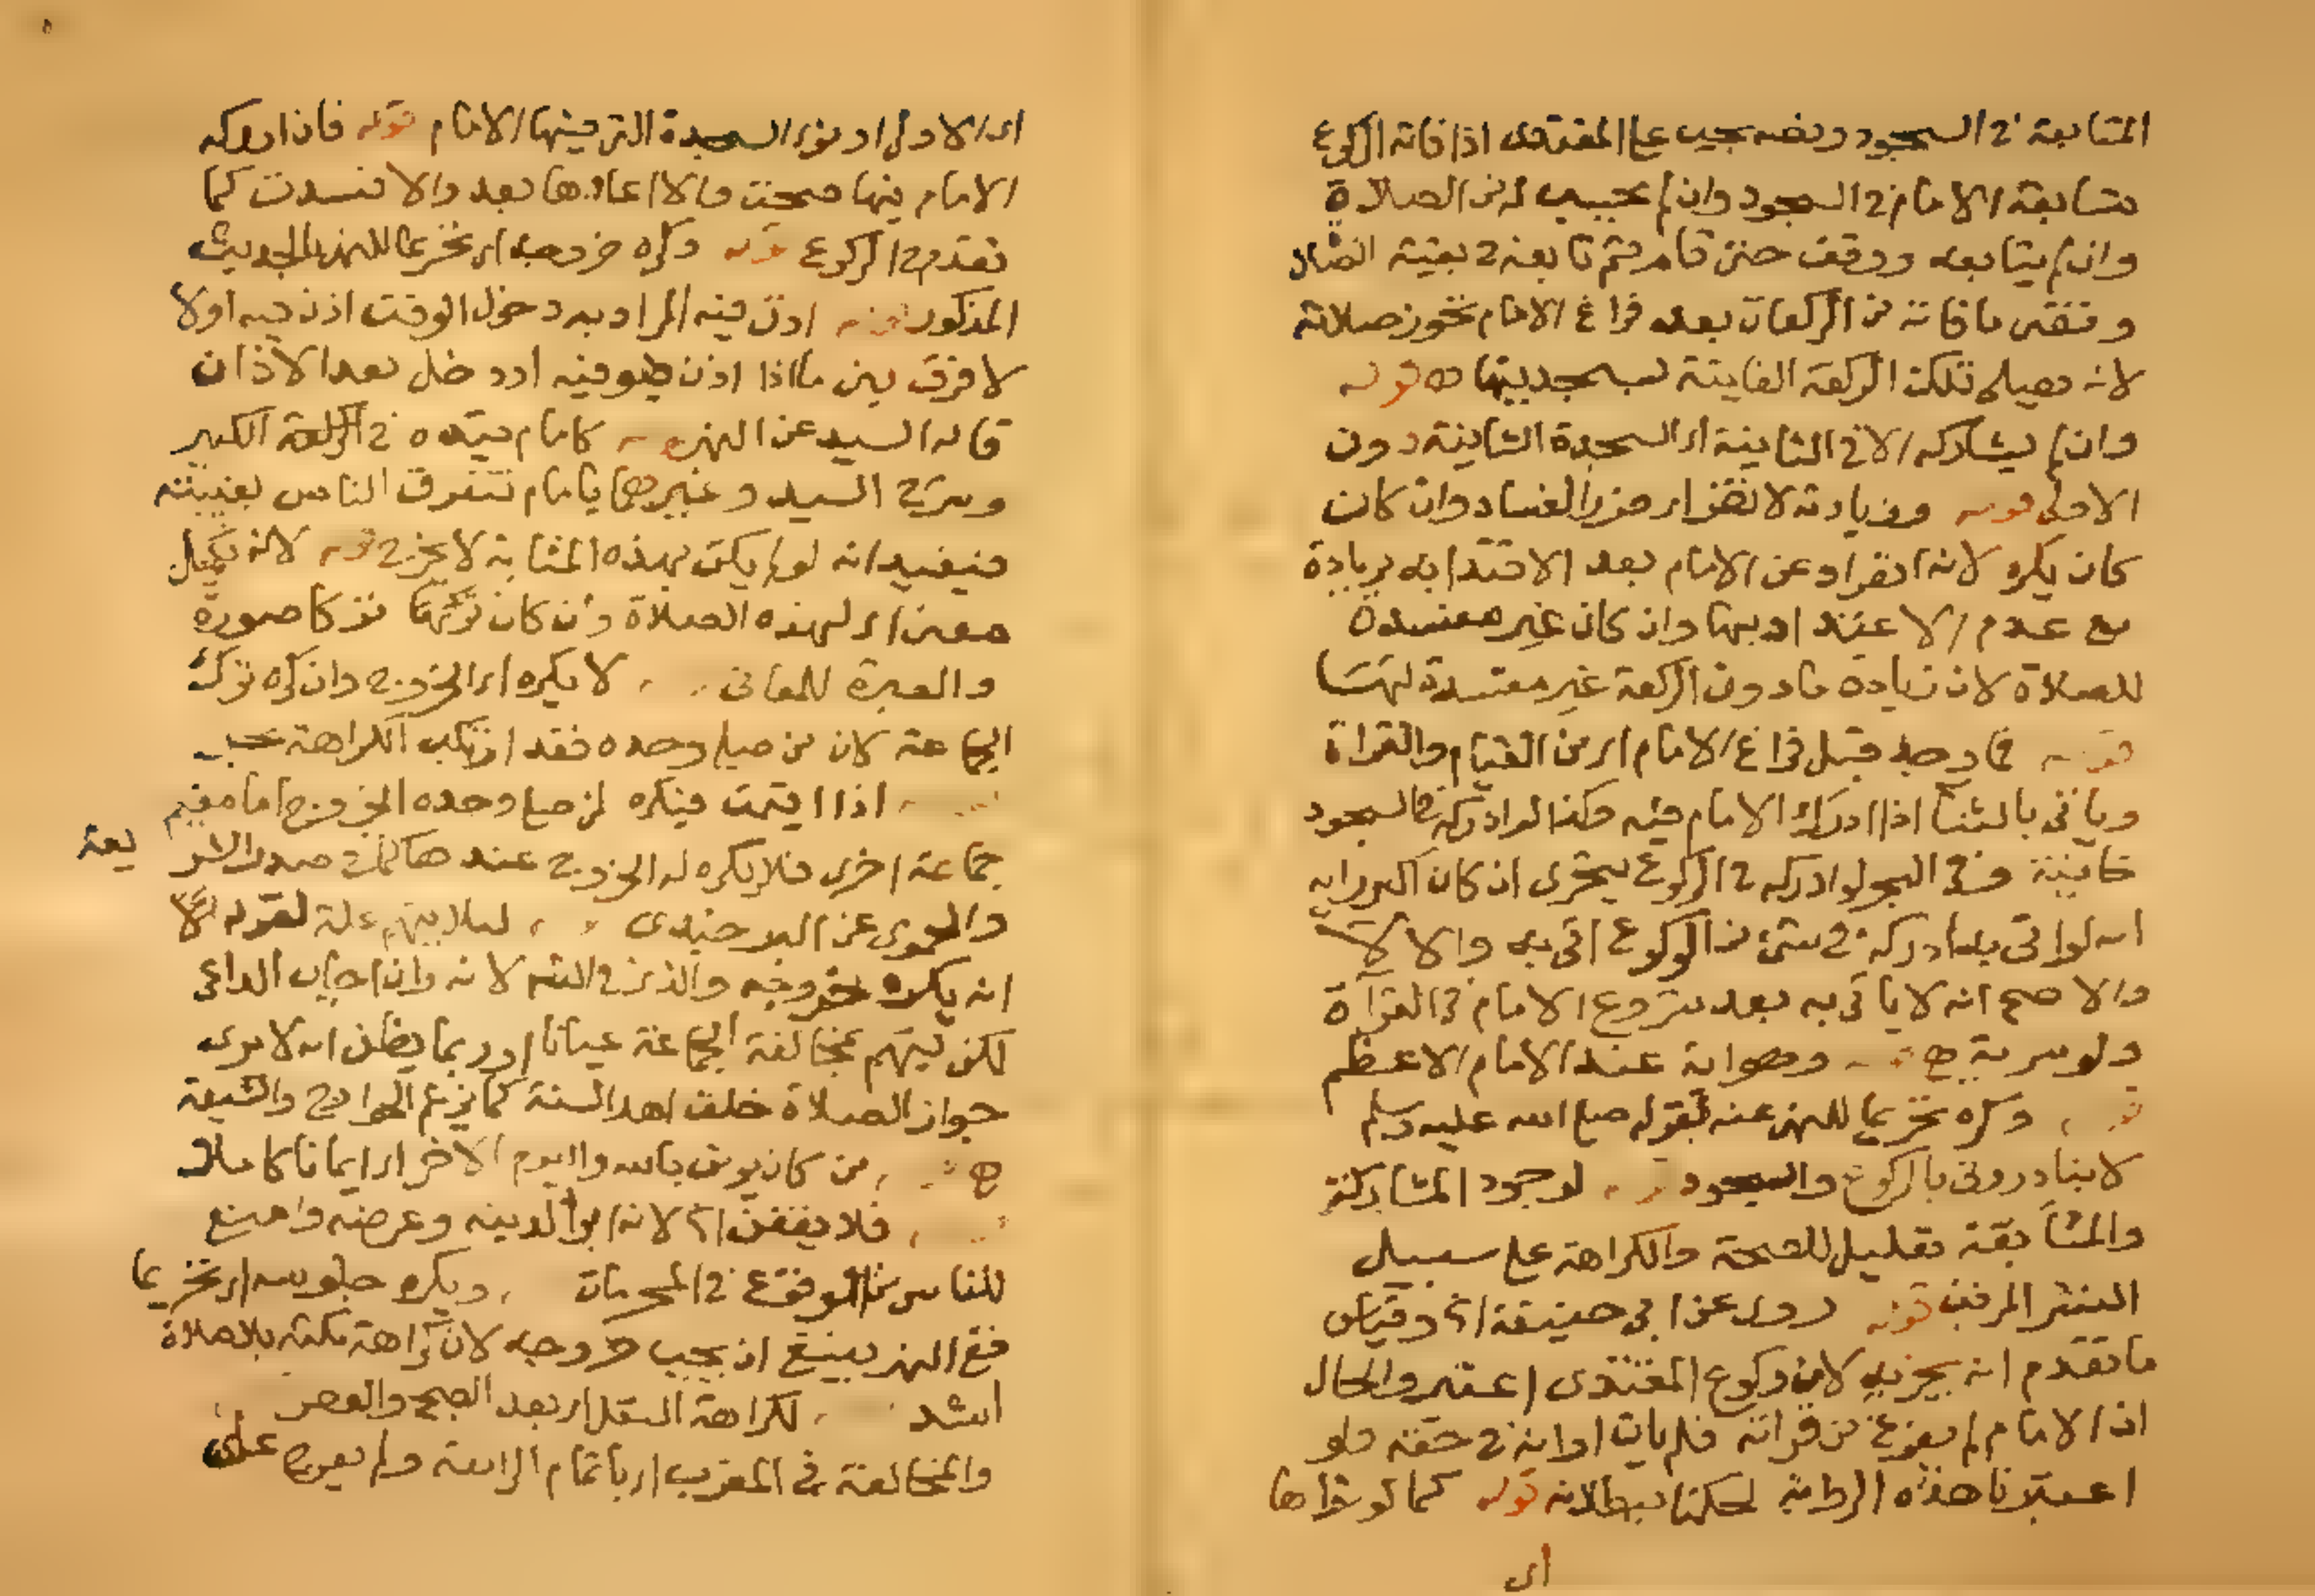 المتابعة في السجود ونصه يجب على المقتدى اذا فاته الركوع
متابعة الامام في السجود وان لم يحسب له من الصلاة
وان لم يتابعه ووقف حتى قام ثم تابعه في بقية الصلاة
وقضى ما فاته من الركعات بعد فراغ الامام تجوز صلاته
لانه يصلى تلك الركعة الفايتة بسجدتيها قوله
وان لم يشاركه الا في الثانية اى السجدة الثانية دون
الاولى قوله وزيادته لا تضر اى من الفساد وان كان
كان يكره لانه انفراد عن الامام بعد الاقتدا به بزيادة
مع عدم الاعتداد بها وان كان غير مفسدة
للصلاة لان زيادة ما دون الركعة غير مفسدة
قوله قبل فراغ الامام اى من القيام والقراة
وياتى بالثنا اذا ادرك الامام فيه وكذا لو ادركه في السجود
خانية وفى البحر لو ادركه في الركوع يتحرى ان كان اكبر رايه
انه لو اتى به ادركه في شئ من الركوع اتى به والا لا
والاصح انه لا ياتى به بعد شروع الامام في القرآة
ولو سرية ح وصوابه عند الامام الاعظم
وكره تحريما للنهى عنه بقوله صلى الله عليه وسلم
لا تبادرونى بالركوع والسجود لوجود المشاركة
والمسابقة تعليل للصحة والكراهة على سبيل
النشر المرتب قوله روى عن ابى حنيفة الخ وقياس
ما تقدم انه يجزيه لان ركوع المقتدى اعتبر والحال
اذ الامام لم يفرغ من قراته فلم يات اوانه في حقه ولو
اعتبرنا هذه لحكمنا ببطلانه قوله كما لو قراها
اى
اى الاولى او نوى السجدة التى فيها الامام قوله فان ادركه
الامام فيها صحت والا اعادها بعد والا فسدت كما
تقدم في الركوع قوله وكره خروجه اى تحريما للنهى بالحديث
المذكور قوله اذن فيه المراد به دخول الوقت اذن فيه اولا
لا فرق بين ما اذا اذن وهو فيه او دخل بعد الاذان
قاله السيد عن النهر كامام
السيد وغيرهما بامام تتفرق الناس بغيبته
فيفيد انه لو لم يكن بهذه المثابة لا يخرج قوله لانه تكميل
معنى اى لهذه الصلاة وان كان تركها تركا صورة
والعبرة للمعانى لا يكره اى الخروج وان كره ترك
الجماعة لان من صلى وحده فقد ارتكب الكراهة
اذا اقيمت فيكره لمن صلى وحده الخروج اما مقيم
جماعة اخرى فلا يكره له الخروج عندها كما في صدر الشريعة
والحموى عن البرجندى لئلا يتهم علة لقوله
انه يكره خروجه والذى في لانه وان اجاب الداعى
لكن يتهم بمخالفة الجماعة عيانا وربما يظن انه لا يرى
جواز الصلاة خلف اهل السنة كما يزعم الخوارج والشيعة
ح من كان يومن بالله واليوم الاخر اى ايمانا كاملا
فلا يقفن الخ لانه ابرا لدينه وعرضه وامنع
للناس من الوقوع في المحرمات ويكره جلوسه اى تحريما
ففى النهر ينبغى ان يجب خروجه لان كراهة مكثه بلا صلاة
اشد لكراهة النفل اى بعد الصبح والعصر
والمخالفة في المغرب اى باتمام الرابعة ولم على